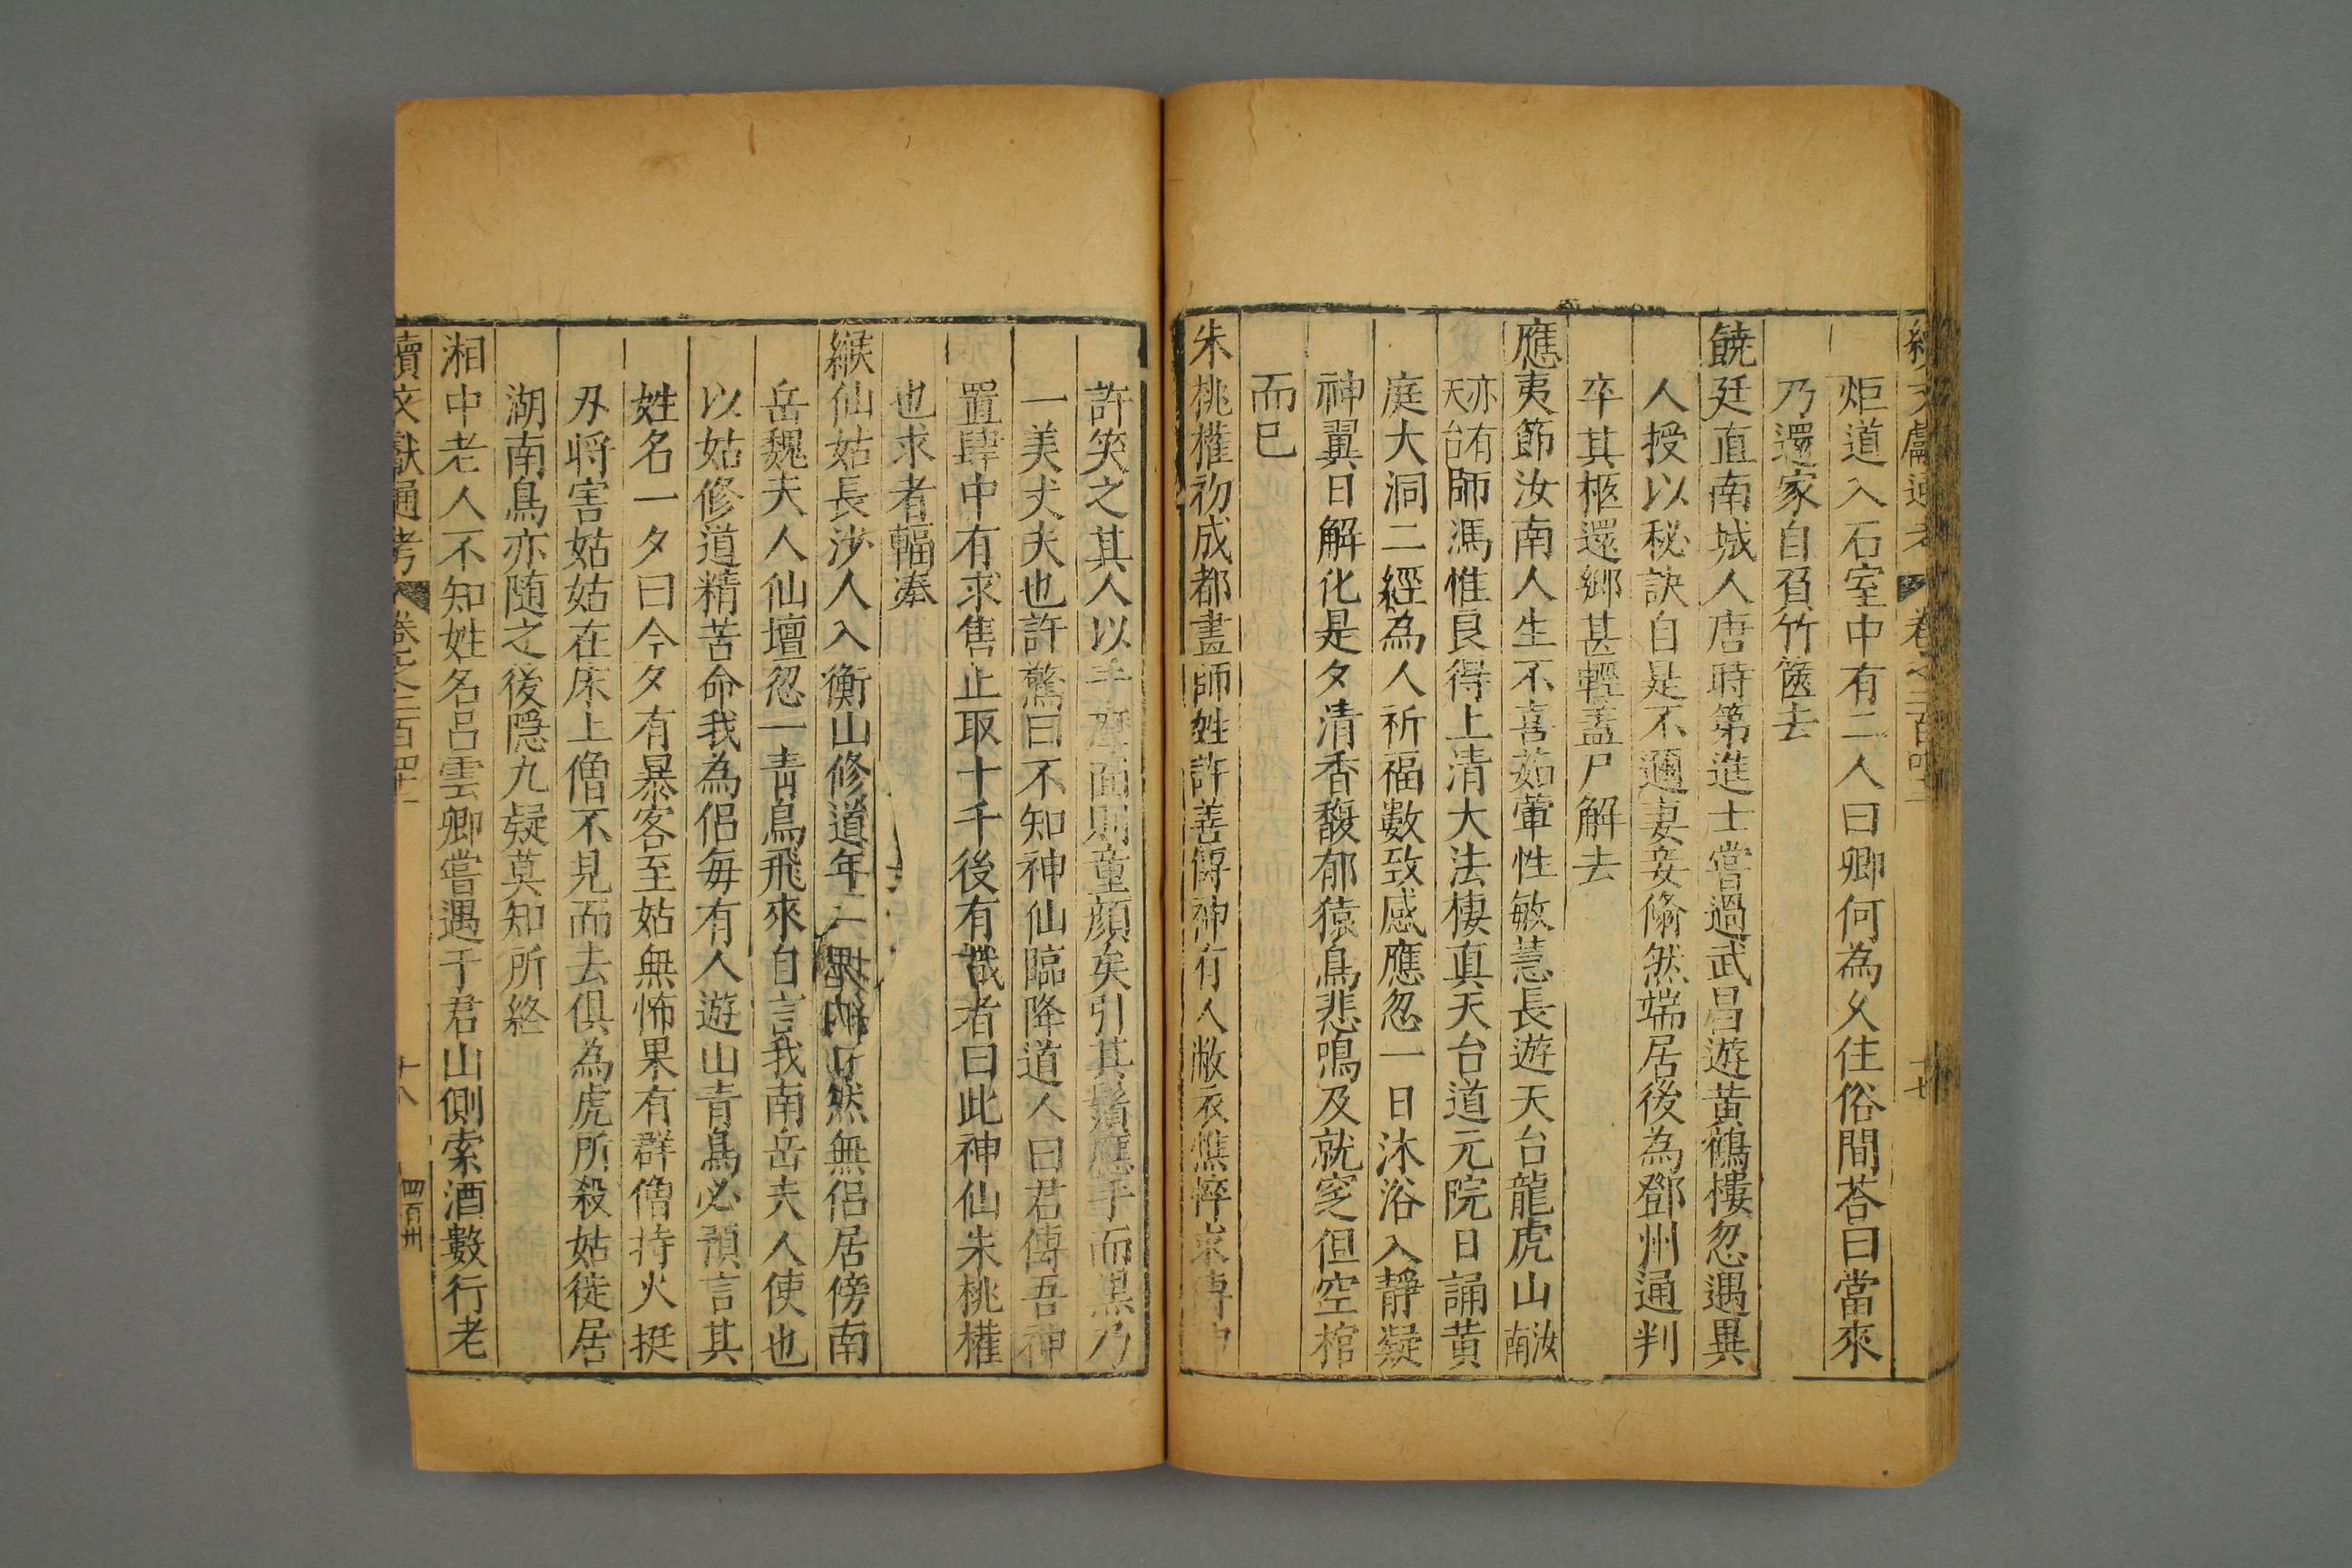 續文獻通考 卷之二百四十一 十七
炬道入石室中有二人曰卿何為久住俗間荅曰當來
乃還家自負竹篋去
饒廷直南城人唐時第進士嘗過武昌遊黃鶴樓忽遇異
人授以秘訣自是不邇妻妾翛然端居後為鄧州通判
卒其柩還鄉甚輕蓋尸解去
應夷節汝南人生不喜茹葷性敏慧長遊天台龍虎山汝南
亦有天台師馮惟良得上清大法棲真天台道元院日誦黃
庭大洞二經為人祈福數致感應忽一日沐浴入靜凝
神翼日解化是夕清香馥郁猿鳥悲鳴及就窆但空棺
而已
朱桃權初成都畫師姓許善傳神有人敝衣憔悴求傳神
許笑之其人以手摩面則童顏矣引其鬚應手而黑乃
一美丈夫也許驚曰不知神仙臨降道人曰君傳吾神
置肆中有求售止取十千後有識者曰此神仙朱桃權
也求者輻湊
緱仙姑長沙人入衡山修道年八然無侶居傍南
岳魏夫人仙壇忽一青鳥飛來自言我南岳夫人使也
以姑修道精苦命我為侶每有人遊山青鳥必預言其
姓名一夕曰今夕有暴客至姑無怖果有群僧持火挺
刃將害姑姑在床上僧不見而去俱為虎所殺姑徙居
湖南鳥亦隨之後隱九疑莫知所終
湘中老人不知姓名呂雲卿嘗遇于君山側索酒數行老
續文獻通考 卷之二百四十一 十八 四百卅